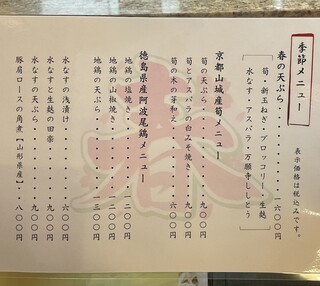 季節メニュー
表示価格は税込みです。
春の天ぷら・・・・・・・・・一六〇〇円
筍・新玉ねぎ・ブロッコリー・生麩
水なす・アスパラ 万願寺ししとう
京都山城産筍メニュー
筍の天ぷら・・・・・・・九〇〇円
筍とアスパラの白みそ焼き・・・九〇〇円
筍の木の芽和え・・・・・・六〇〇円
徳島県産阿波尾鶏メニュー
地鶏の塩焼き・・・・・・一二〇〇円
地鶏の山椒焼き・・・・・一二〇〇円
地鶏の天ぷら・・・・・・一三〇〇円
水なすの浅漬け・・・・・・六〇〇円
水なすと生麩の田楽・・・・・九〇〇円
水なすの天ぷら・・・・・・九〇〇円
豚肩ロースの角煮【山形県産】・・・八〇〇円
春